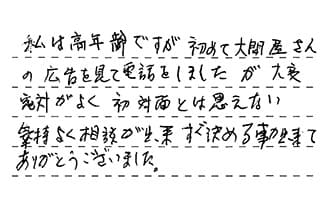 私は高年齢ですが初めて大関屋さん
の広告を見て電話をしましたが大変
応対がよく初対面とは思えない
気持よく相談が出来すぐ決める事出来て
ありがとうございました。